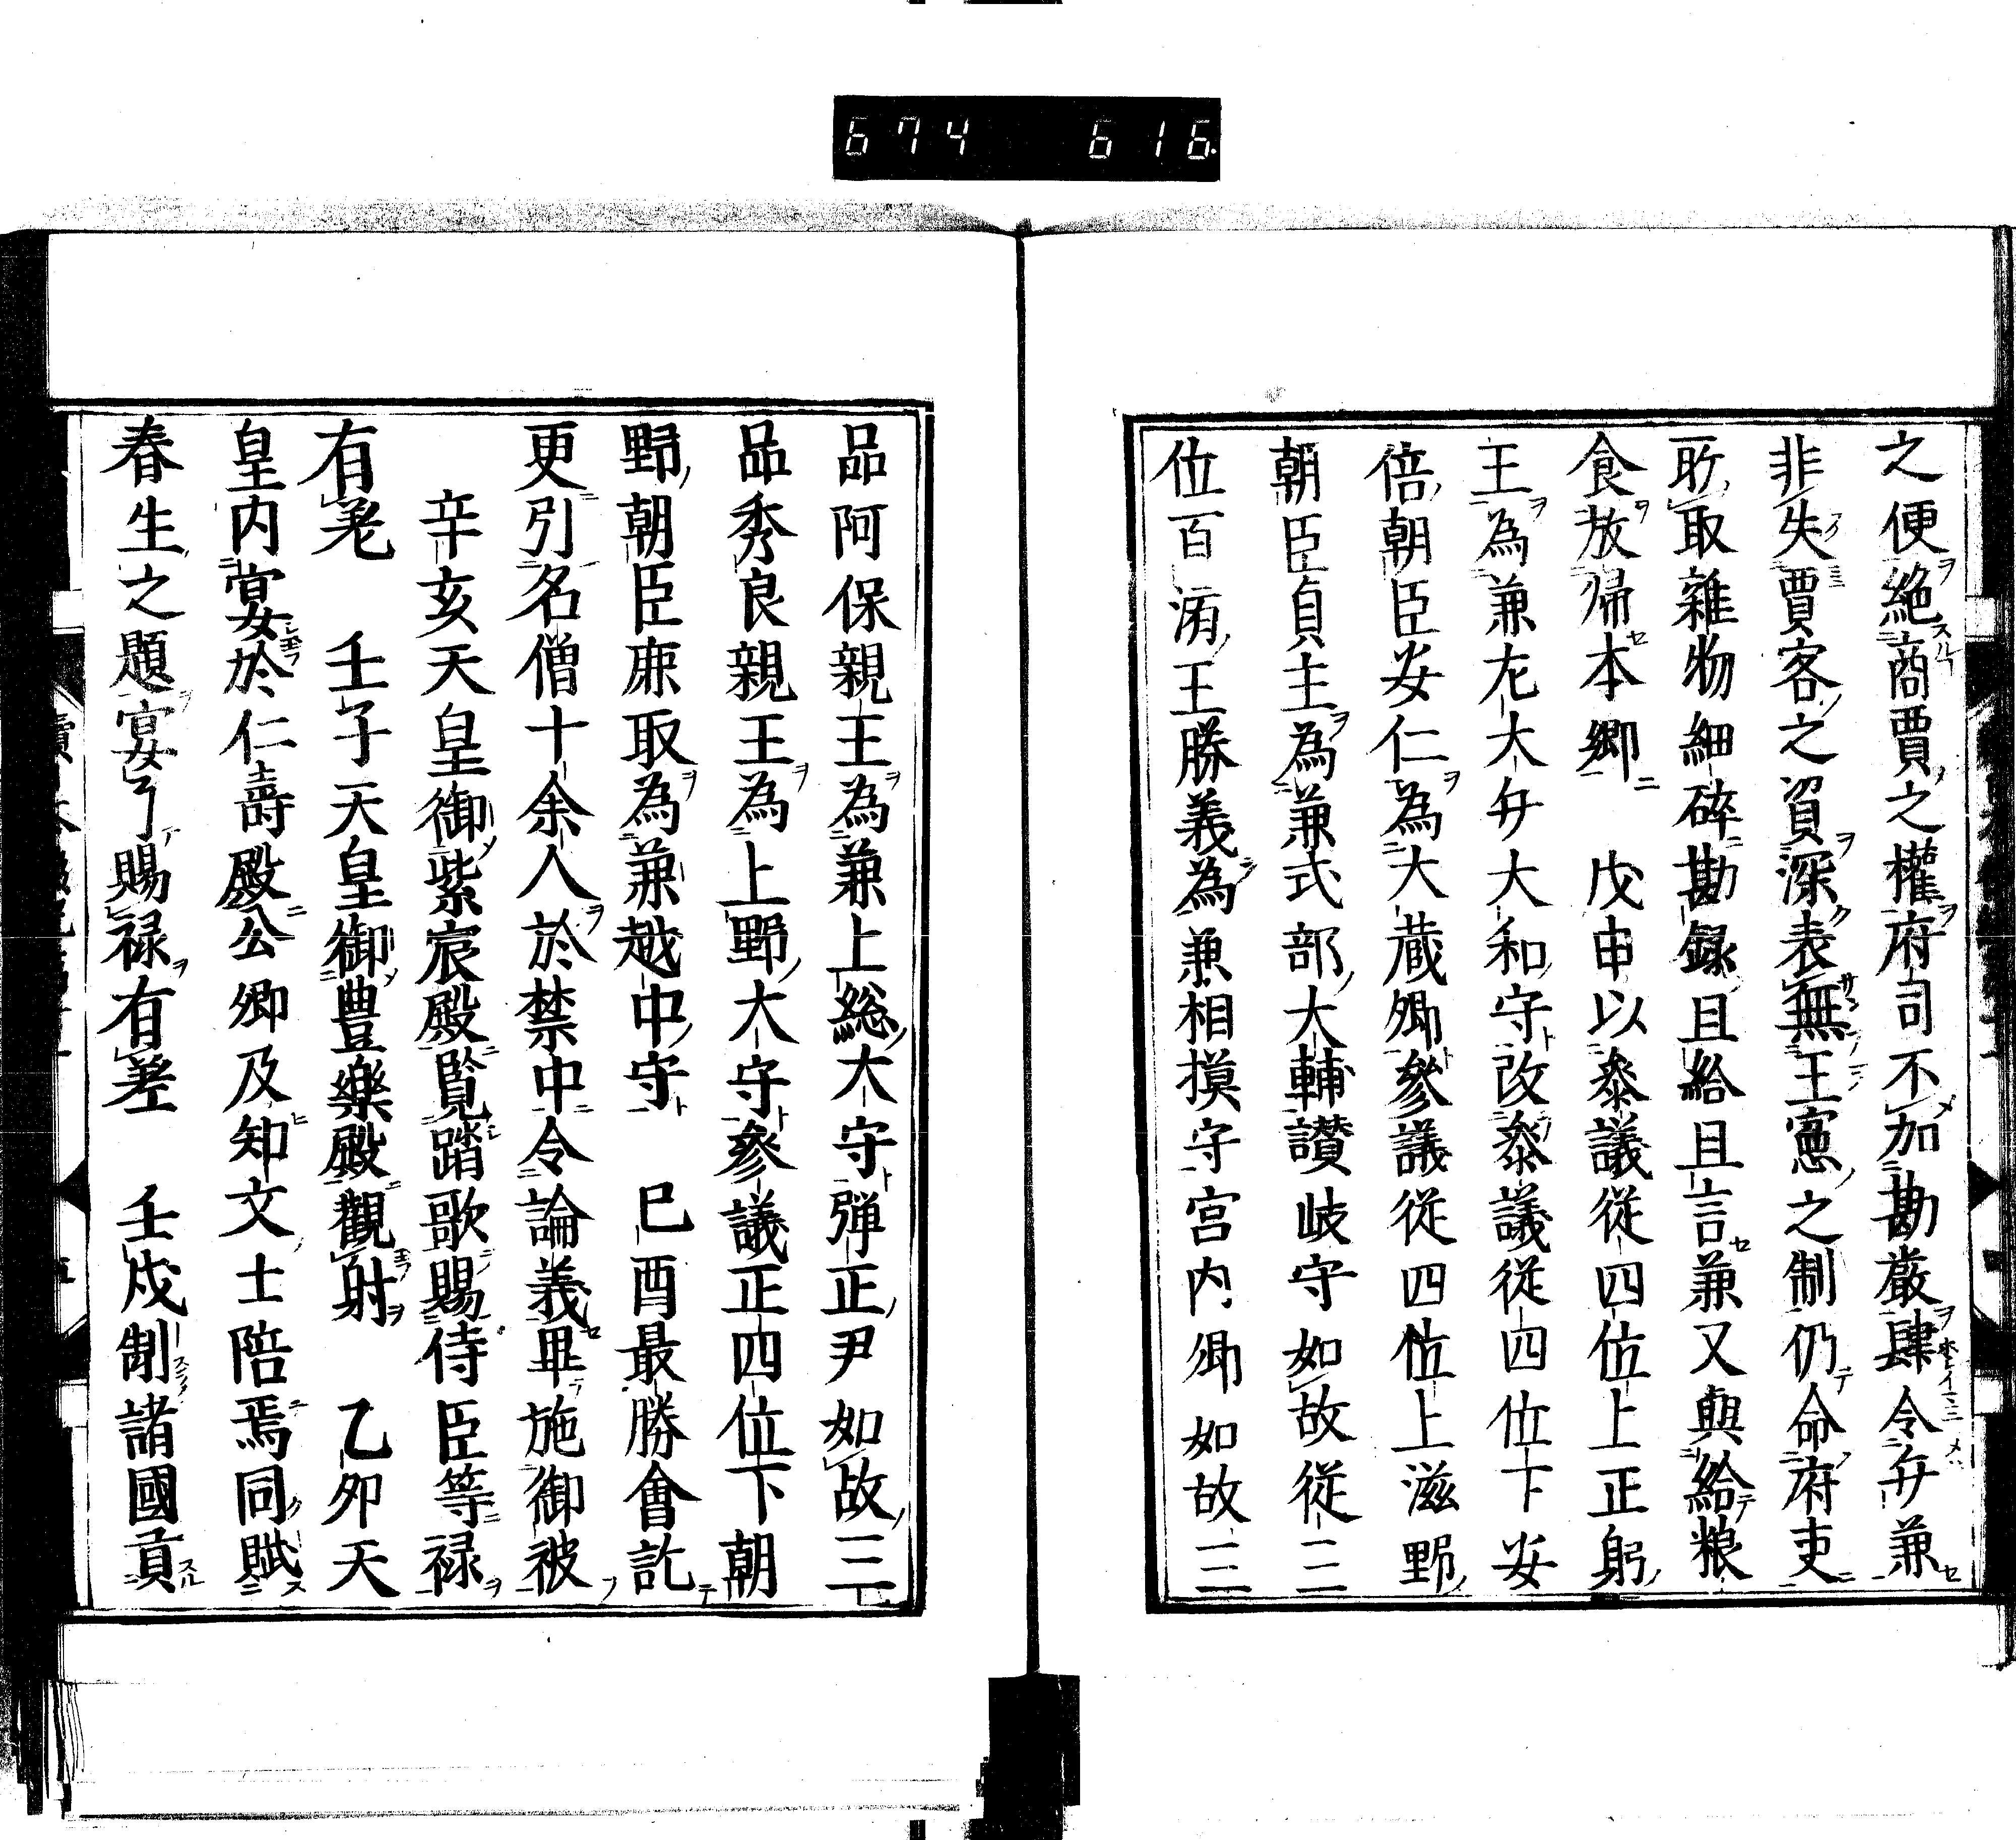 674 616
之便絶商賈之權府司不加勘厳肆令弁兼
非失賈客之資深表無王憲之制仍命府吏
所取雜物細碎勘録且給且言兼又與給粮
食放帰本郷　戊申以叅議従四位上正躬
王為兼左大弁大和守改叅議従四位下安
倍朝臣安仁為大蔵卿參議従四位上滋野
朝臣貞主為兼式部大輔讃岐守如故従三
位百済王勝義為兼相摸守宮内卿如故三
品阿保親王為兼上総大守弾正尹如故三
品秀良親王為上野大守參議正四位下朝
野朝臣鹿取為兼越中守　巳酉最勝會訖
更引名僧十余人於禁中令論義畢施御被
辛亥天皇御紫宸殿覧踏歌賜侍臣等禄
有差　壬子天皇御豊樂殿觀射　乙夘天
皇内宴於仁壽殿公卿及知文士陪焉同賦
春生之題宴了賜禄有差　壬戌制諸國貢